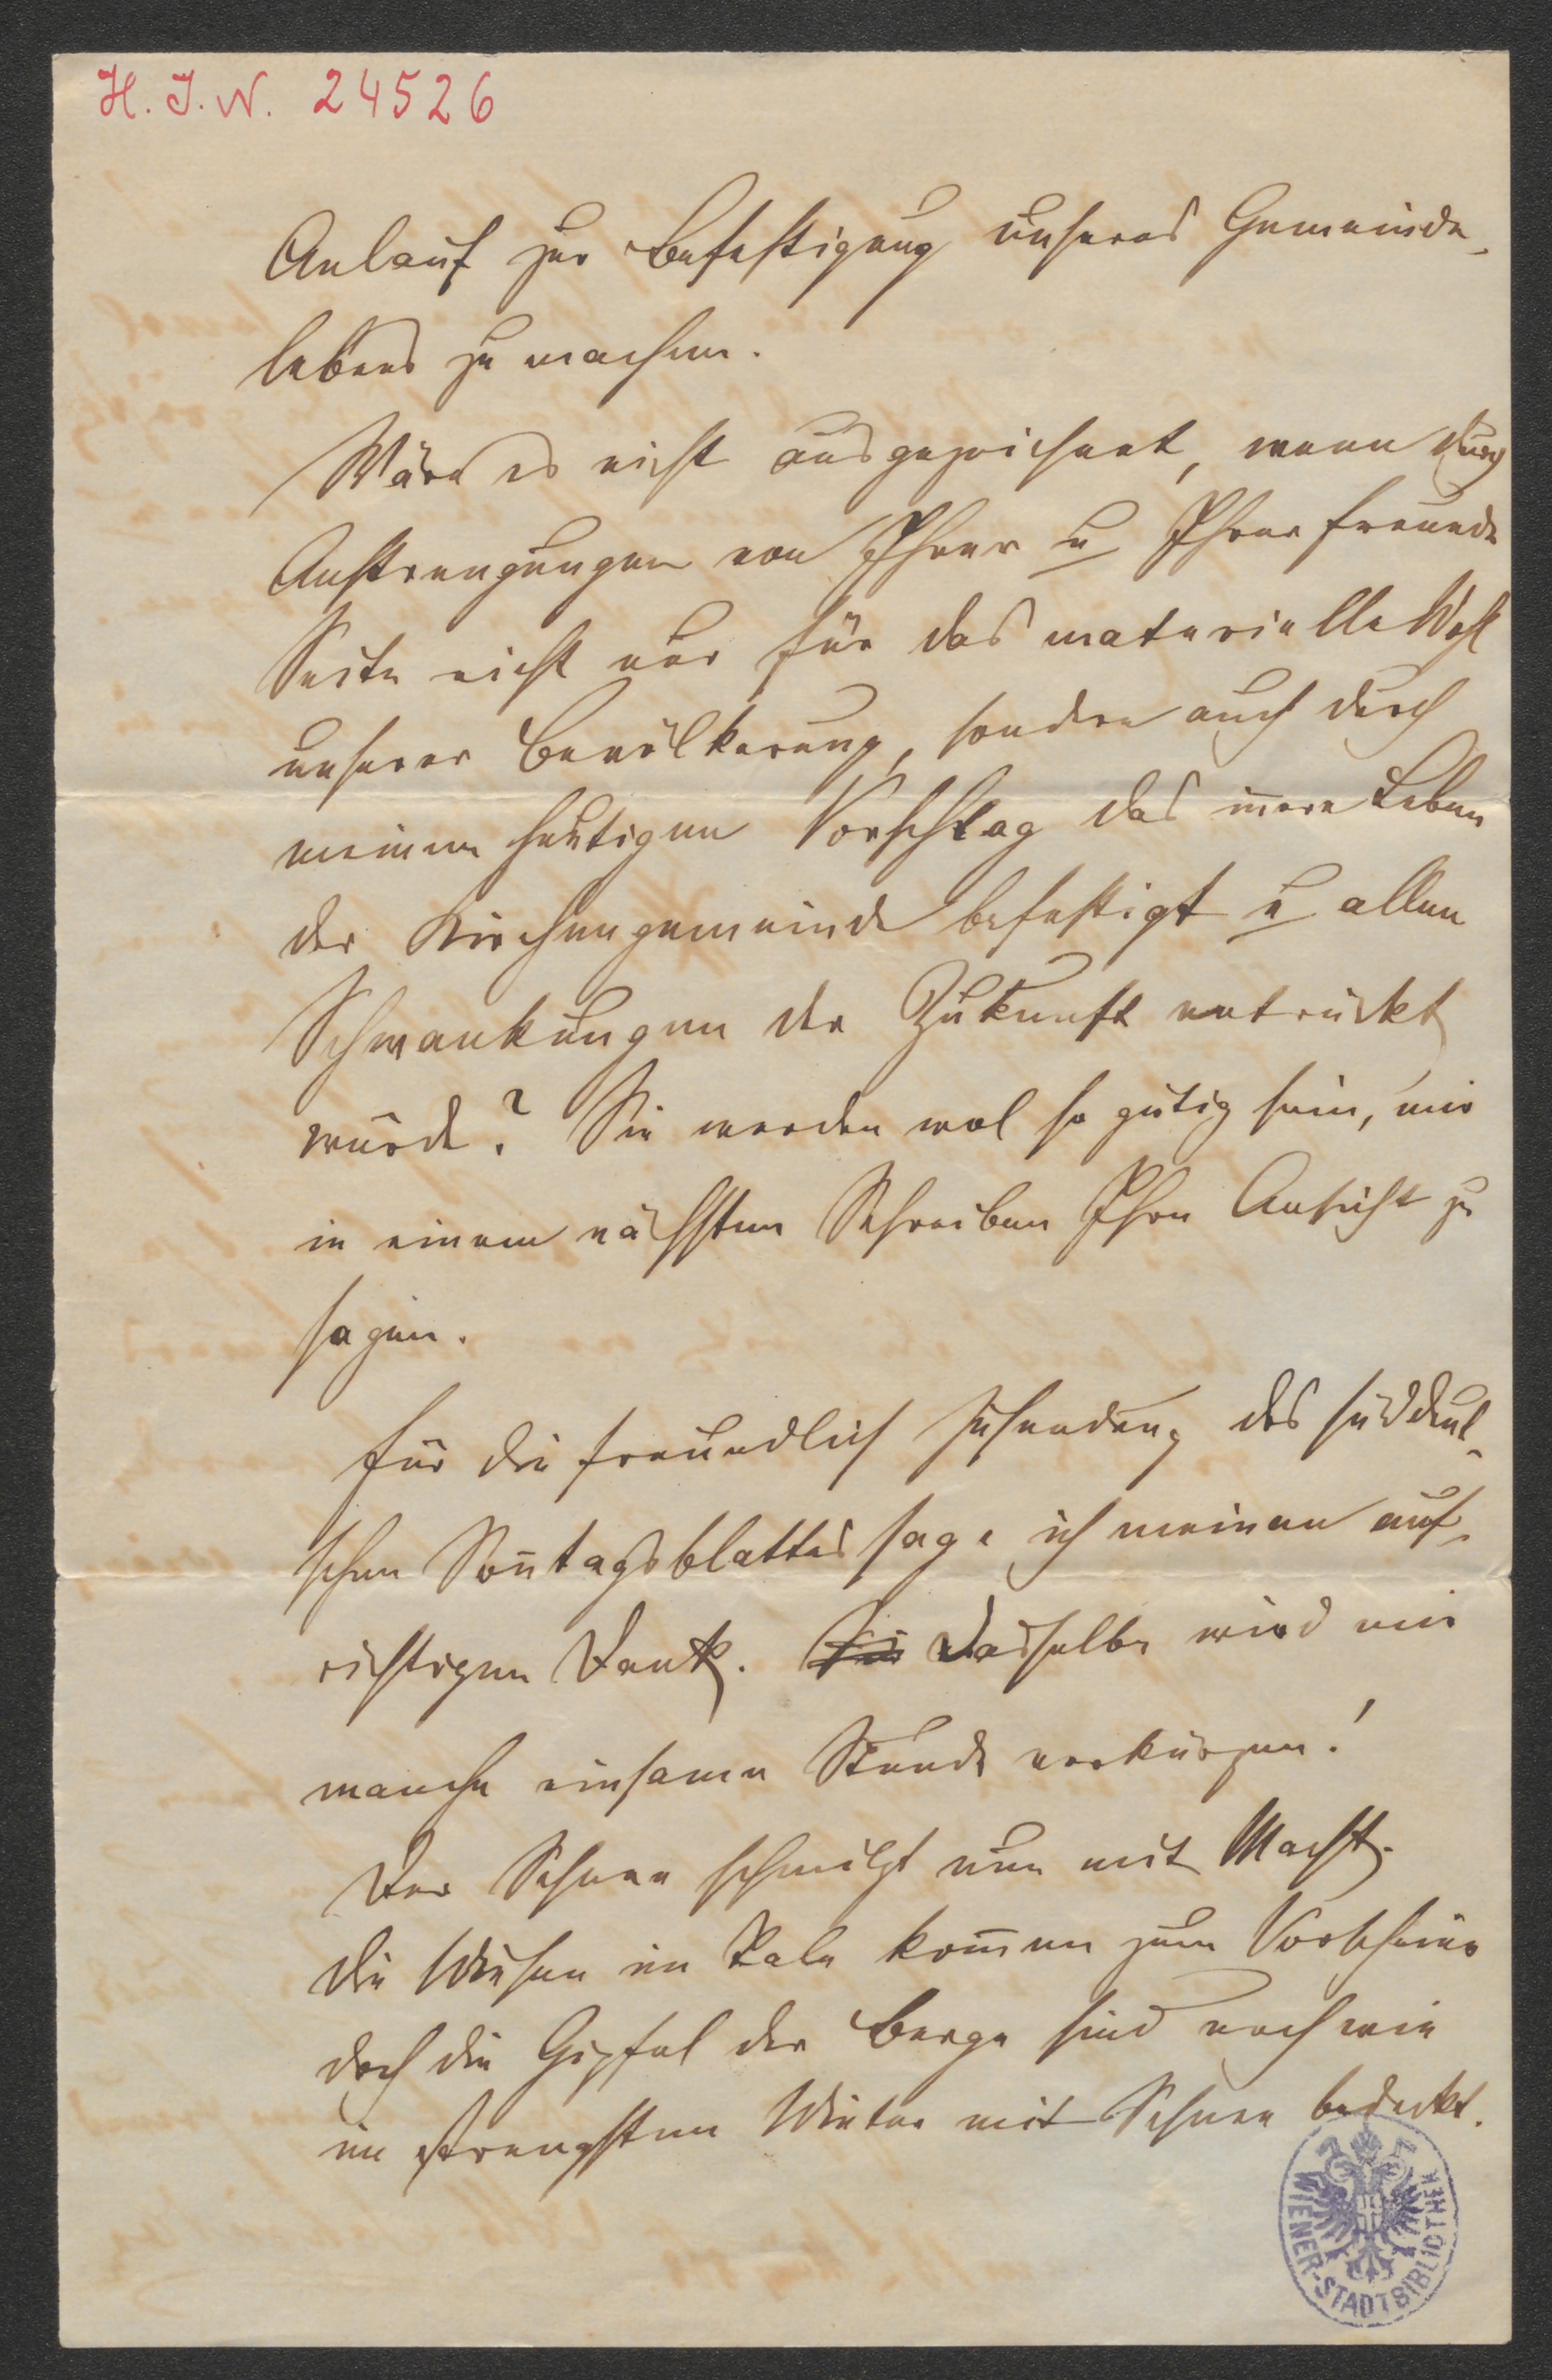 H. I. N. 24526
Anlauf zur Befestigung unseres Gemeinde-
lebens zu machen.
Wäre es nicht ausgezeichnet, wenn durch
Anstrengungen von Ihrer u Ihrer Freunde
Seite nicht nur für das materielle Wohl
unserer Bevölkerung, sondern auch durch
meinen heutigen Vorschlag das iñere Leben
der Kirchengemeinde befestigt u allen
Schwankungen der Zukunft entrückt
würde? Sie werden wol so gütig sein, mir
in einem nächsten Schreiben Ihre Ansicht zu
sagen.
Für die freundlich Zusendung des süddeut-
schen Soñtagsblattes sage ich meinen auf-
richtigen Dank. Dasselbe wird mir
manche einsame Stunde verkürzen!
Der Schnee schmilzt nun mit Macht.
Die Wiesen im Tale kom̄en zum Vorschein
doch die Gipfel der Berge sind noch wie
im strengsten Winter mit Schnee bedeckt.
WIENER-STADTBIBLIOTHEK